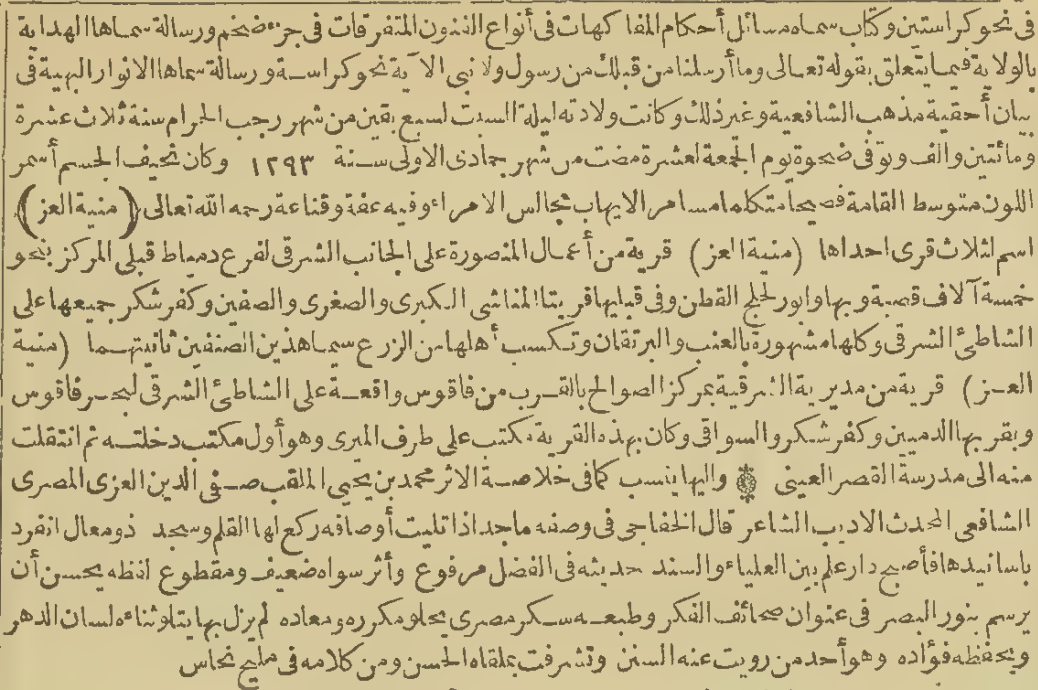 فى نحو كراستين وكتاب سماه مسائل أحكام المفاكهات فى أنواع الفنون المتفرقات فى جزء ضخم ورسالة سماها الهداية
بالولاية فيما يتعلق بقوله تعالى وما أرسلنا من قبلك من رسول ولا نبى الآية نحو كراسة ورسالة سماها الانوار البهية فى
بيان أحقية مذهب الشافعية وغير ذلك وكانت ولادته ليلة السبت لسبع بقين من شهر رجب الحرام سنة ثلاث عشرة
ومائتين وألف وتوفى ضحوة يوم الجمعة لعشرة مضت من شهر جمادى الاولى سنة ١٢٩٣ وكان نحيف الجسم أسمر
اللون متوسط القامة فصيحا متكلما مسامرا لايهاب مجالس الامراء وفيه عفة وقناعة رحمه الله تعالى (منية العز)
اسم لثلاث قرى احداها (منية العز) قرية من أعمال المنصورة على الجانب الشرقى لفرع دمياط قبلى المركز بنحو
خمسة آلاف قصبة وبها وابور لحلج القطن وفى قبليها قريتا المناشى الكبرى والصغرى والصفين وكفر شكر جميعها على
الشاطئ الشرقى وكلها مشهورة بالعنب والبرتقان وتكسب أهلها من الزرع سيما هذين الصنفين ثانيتهما (منية
العز) قرية من مديرية الشرقية بمركز الصوالح بالقرب من فاقوس واقعة على الشاطئ الشرقى لبحر فاقوس
وبقربها الدميين وكفر شكر والسواقى وكان بهذه القرية مكتب على طرف الميرى وهو أول مكتب دخلته ثم انتقلت
منه الى مدرسة القصر العينى واليها ينسب كما فى خلاصة الاثر محمد بن يحيى الملقب صفى الدين العزى المصرى
الشافعى المحدث الاديب الشاعر قال الخفاجى فى وصفه ماجد اذا تليت أوصافه ركع لها القلم وسجد ذو معال انفرد
باسانيدها فأصبح دار علم بين العلياء والسند حديثه فى الفضل مرفوع وأثر سواه ضعيف ومقطوع لفظه يحسن أن
يرسم بنور البصر فى عنوان صحائف الفكر وطبعه سكر مصرى يحلو مكرره ومعاده لم يزل بها يتلو ثناءه لسان الدهر
ويحفظه فؤاده وهو أحد من رويت عنه السنن وتشرفت بملقاه الحسن ومن كلامه فى مليح نحاس